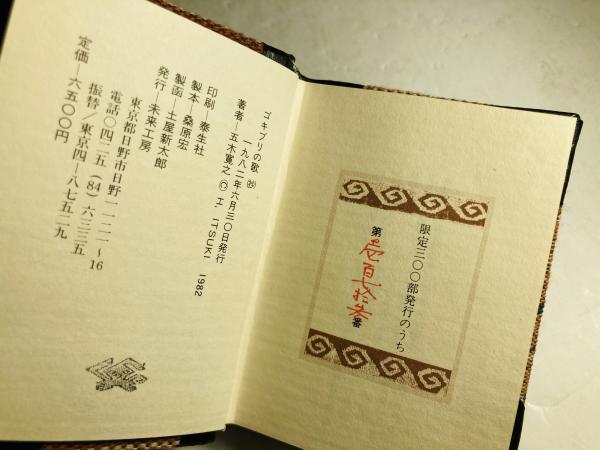 限定三〇〇部発行のうち
第壱百七拾番
ゴキブリの歌 ㊙抄
一九八二年六月三〇日発行
著者—五木寛之 © H. ITSUKI 1982
印刷—泰生社
製本—桑原宏
製函—土屋新太郎
発行—未来工房
東京都日野市日野一一一一〜16
電話〇四二五(84)六三三五
振替/東京四—八七五二九
定価—六五〇〇円